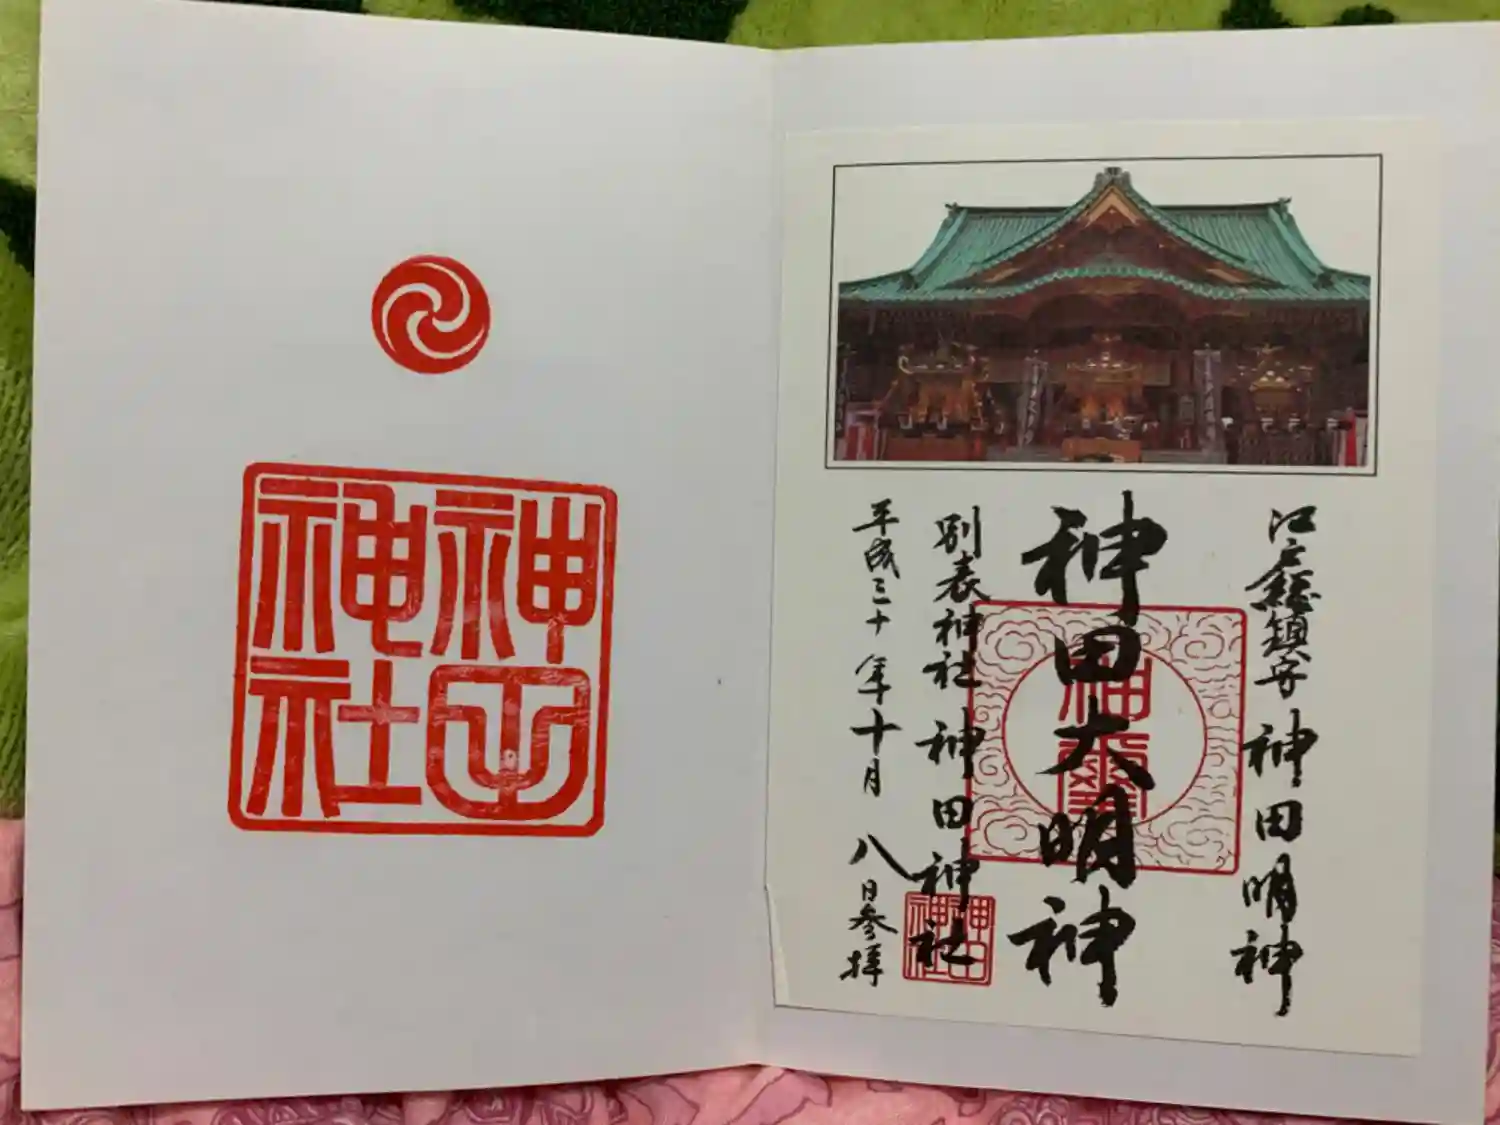 江戸總鎮守 神田明神
神田大明神
神璽
別表神社 神田神社
神田神社
平成三十年十月八日参拝
神田
神社